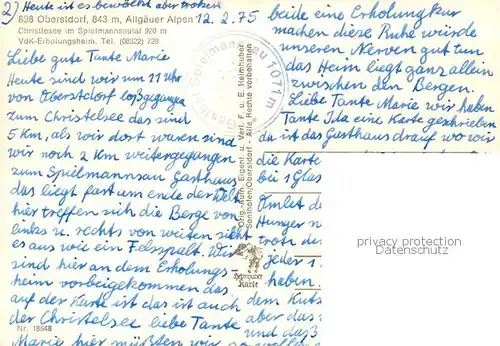 2) Heute ist es bewölkt aber trocken
898 Oberstdorf, 843 m, Allgäuer Alpen
12. 2. 75
Christlesee im Spielmannsautal 920 m
VdK-Erholungsheim. Tel. (08322) 729
Liebe gute Tante Marie
Heute sind wir um 11 Uhr
von Oberstdorf losgegangen
zum Christelsee das sind
5 Km, als wir dort waren sind
wir noch 2 Km weitergegangen
zum Spielmannsau Gasthaus
das liegt fast am ende der Welt
hier treffen sich die Berge von
links u. rechts von weiten sieht
es aus wie ein Felsspalt. Wir
sind hier an dem Erholungs
heim vorbeigekommen das
auf der Karte ist das ist auch
der Christelsee liebe Tante
Nr. 18548
Marie hier müßten wir
Gasthof Spielmannsau 1071 m
Orig.-Aufn. Eigent. u. Verl. F. u. E. Heimhuber
Sonthofen/Oberstdorf - Alle Rechte vorbehalten
Heimhuber
Karte
beide eine Erholungskur
machen diese Ruhe würde
unseren Nerven gut tun
das Heim liegt ganz allein
zwischen den Bergen.
Liebe Tante Marie wir haben
Tante Ida eine Karte geschrieben
da ist das Gasthaus drauf wo wir
die Karte
bei 1 Glas
Omlet de
Hunger n
trotz den
jeder 1.
haben
dem Kuts
aber das
und das
privacy protection
Datenschutz